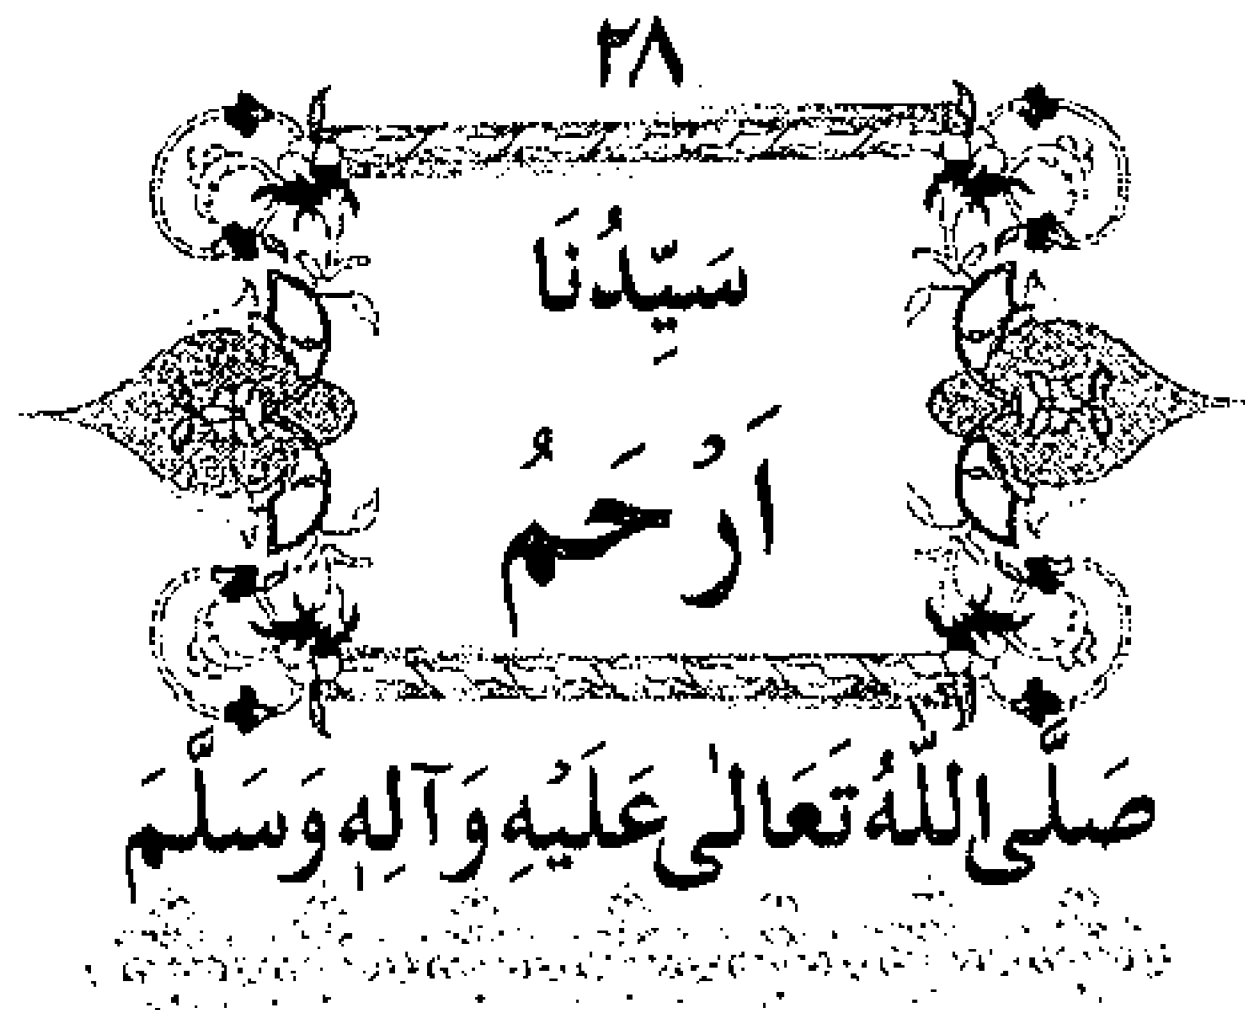 ۲۸
سَيِّدُنَا
اَرْحَمُ
صَلَّى اللّٰهُ تَعَالٰى عَلَيْهِ وَآلِهٖ وَسَلَّمَ